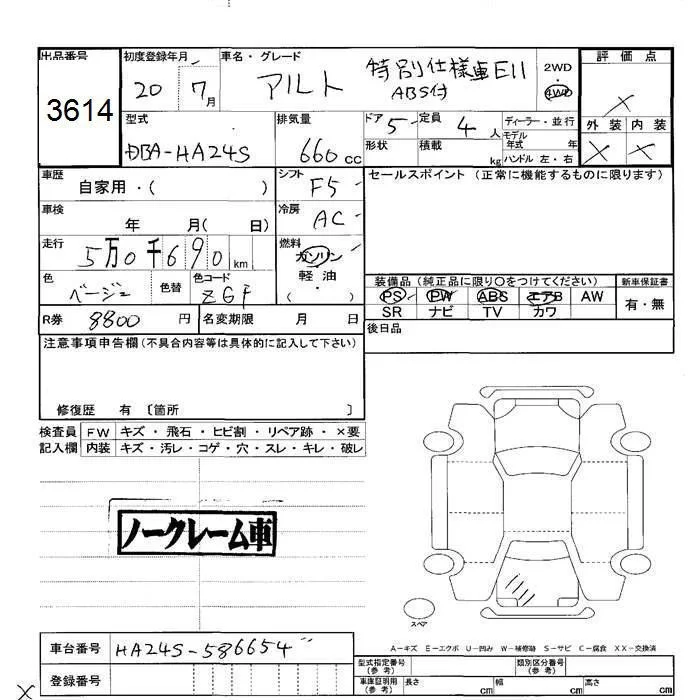 出品番号
3614
初度登録年月 20 7月
車名・グレード アルト 特別仕様車EII
ABS付
2WD ・ 4WD
評価点 X
外装 内装
X X
型式 DBA-HA24S
排気量 660 cc
ドア 5 定員 4 人
形状 積載 kg
ディーラー・並行
モデル年式 年
ハンドル 左・右
車歴 自家用・( )
シフト F5
セールスポイント (正常に機能するものに限ります)
車検 年 月( 日)
冷房 AC
走行 5万0千690 km
燃料 ガソリン
軽・油
・( )
色 ベージュ 色替 色コード ZGF
装備品 (純正品に限り○をつけてください)
新車保証書
PS PW ABS エアB AW
有・無
SR ナビ TV カワ
R券 8800 円 名変期限 月 日
後日品
注意事項申告欄(不具合内容等は具体的に記入して下さい)
修復歴 有 〔箇所 〕
検査員記入欄
FW キズ・飛石・ヒビ割・リペア跡・×要
内装 キズ・汚レ・コゲ・穴・スレ・キレ・破レ
ノークレーム車
スペア
A-キズ E-エクボ U-凹み W-補修跡 S-サビ C-腐食 XX-交換済
車台番号 HA24S-586654"
登録番号
型式指定番号(参考)
類別区分番号(参考)
車庫証明用(参考) 長さ cm 幅 cm 高さ cm
X